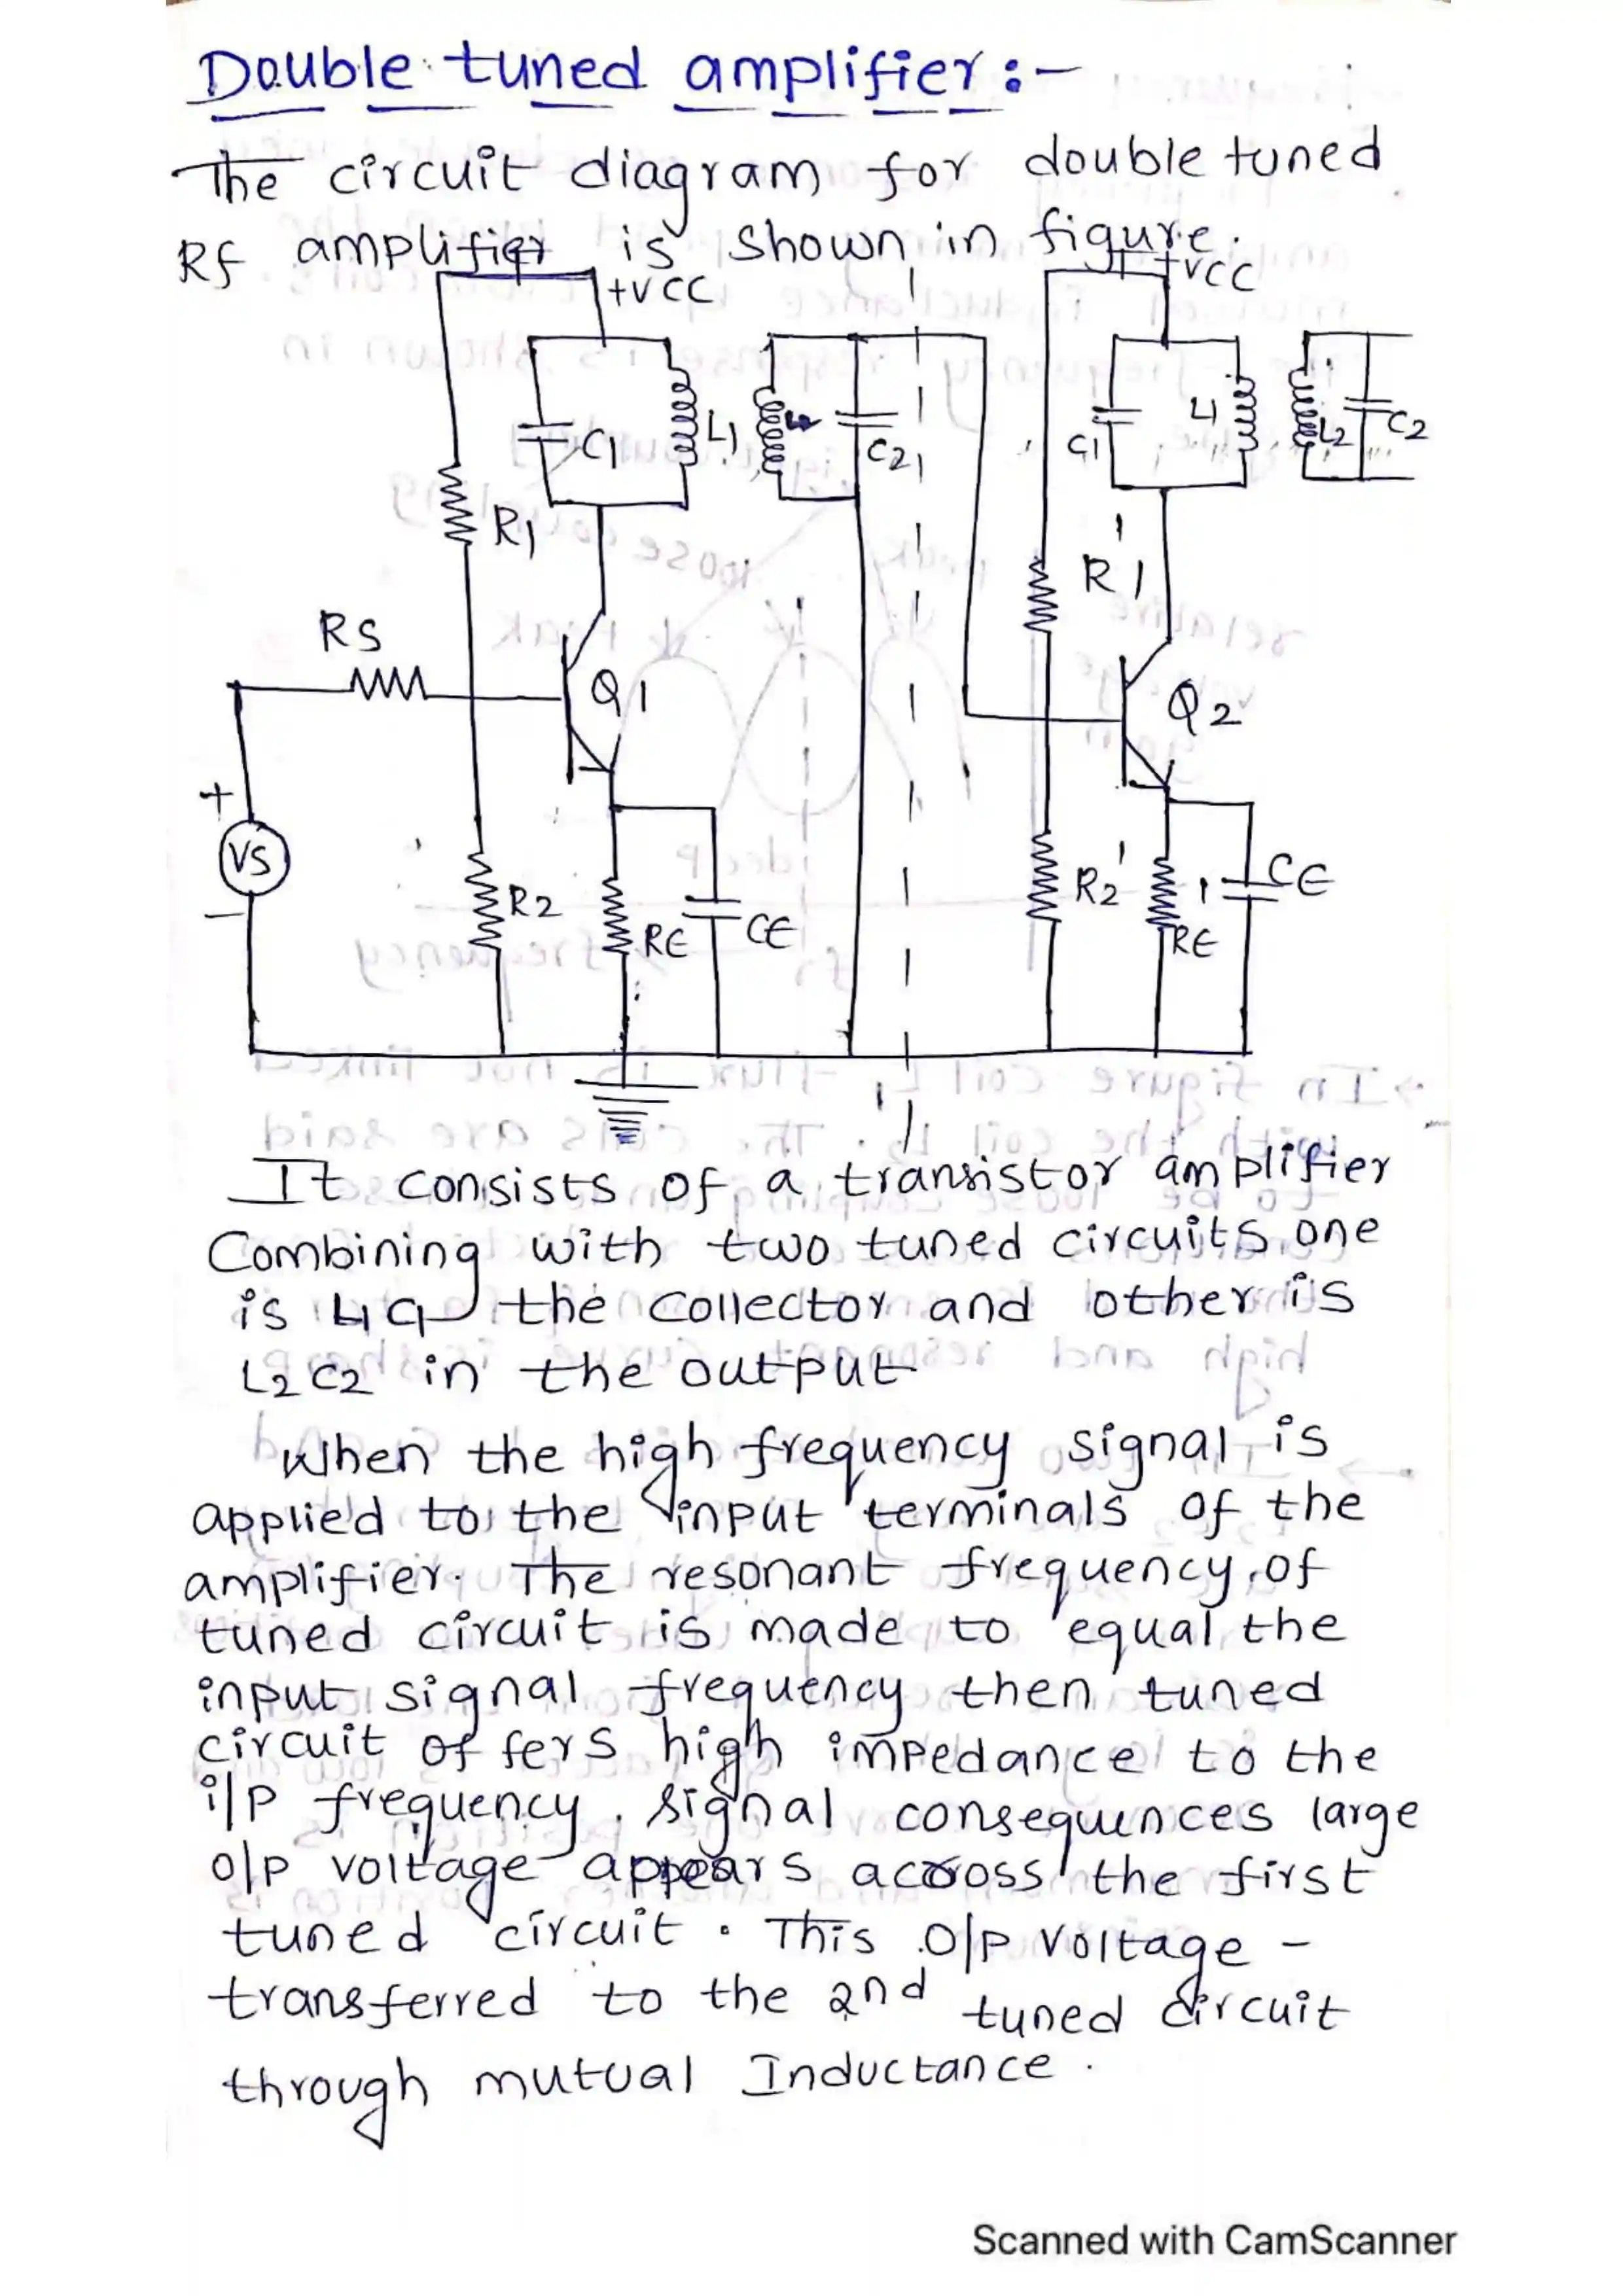 Double tuned amplifier :-
The circuit diagram for double tuned
Rf amplifier is shown in figure.
+VCC
+VCC
C1
L1
C2
C1
L1
L2
C2
R1
R'1
RS
Q1
Q2
+
VS
-
R2
RE
CE
R2'
RE
CE
It consists of a transistor amplifier
Combining with two tuned circuits, one
is L1 C1 the collector and other is
L2 C2 in the output
When the high frequency signal is
applied to the input terminals of the
amplifier. The resonant frequency of
tuned circuit is made to equal the
input signal frequency then tuned
circuit offers high impedance to the
i/p frequency. signal consequences large
o/p voltage appears across the first
tuned circuit. This o/p voltage -
transferred to the 2nd tuned circuit
through mutual Inductance.
Scanned with CamScanner